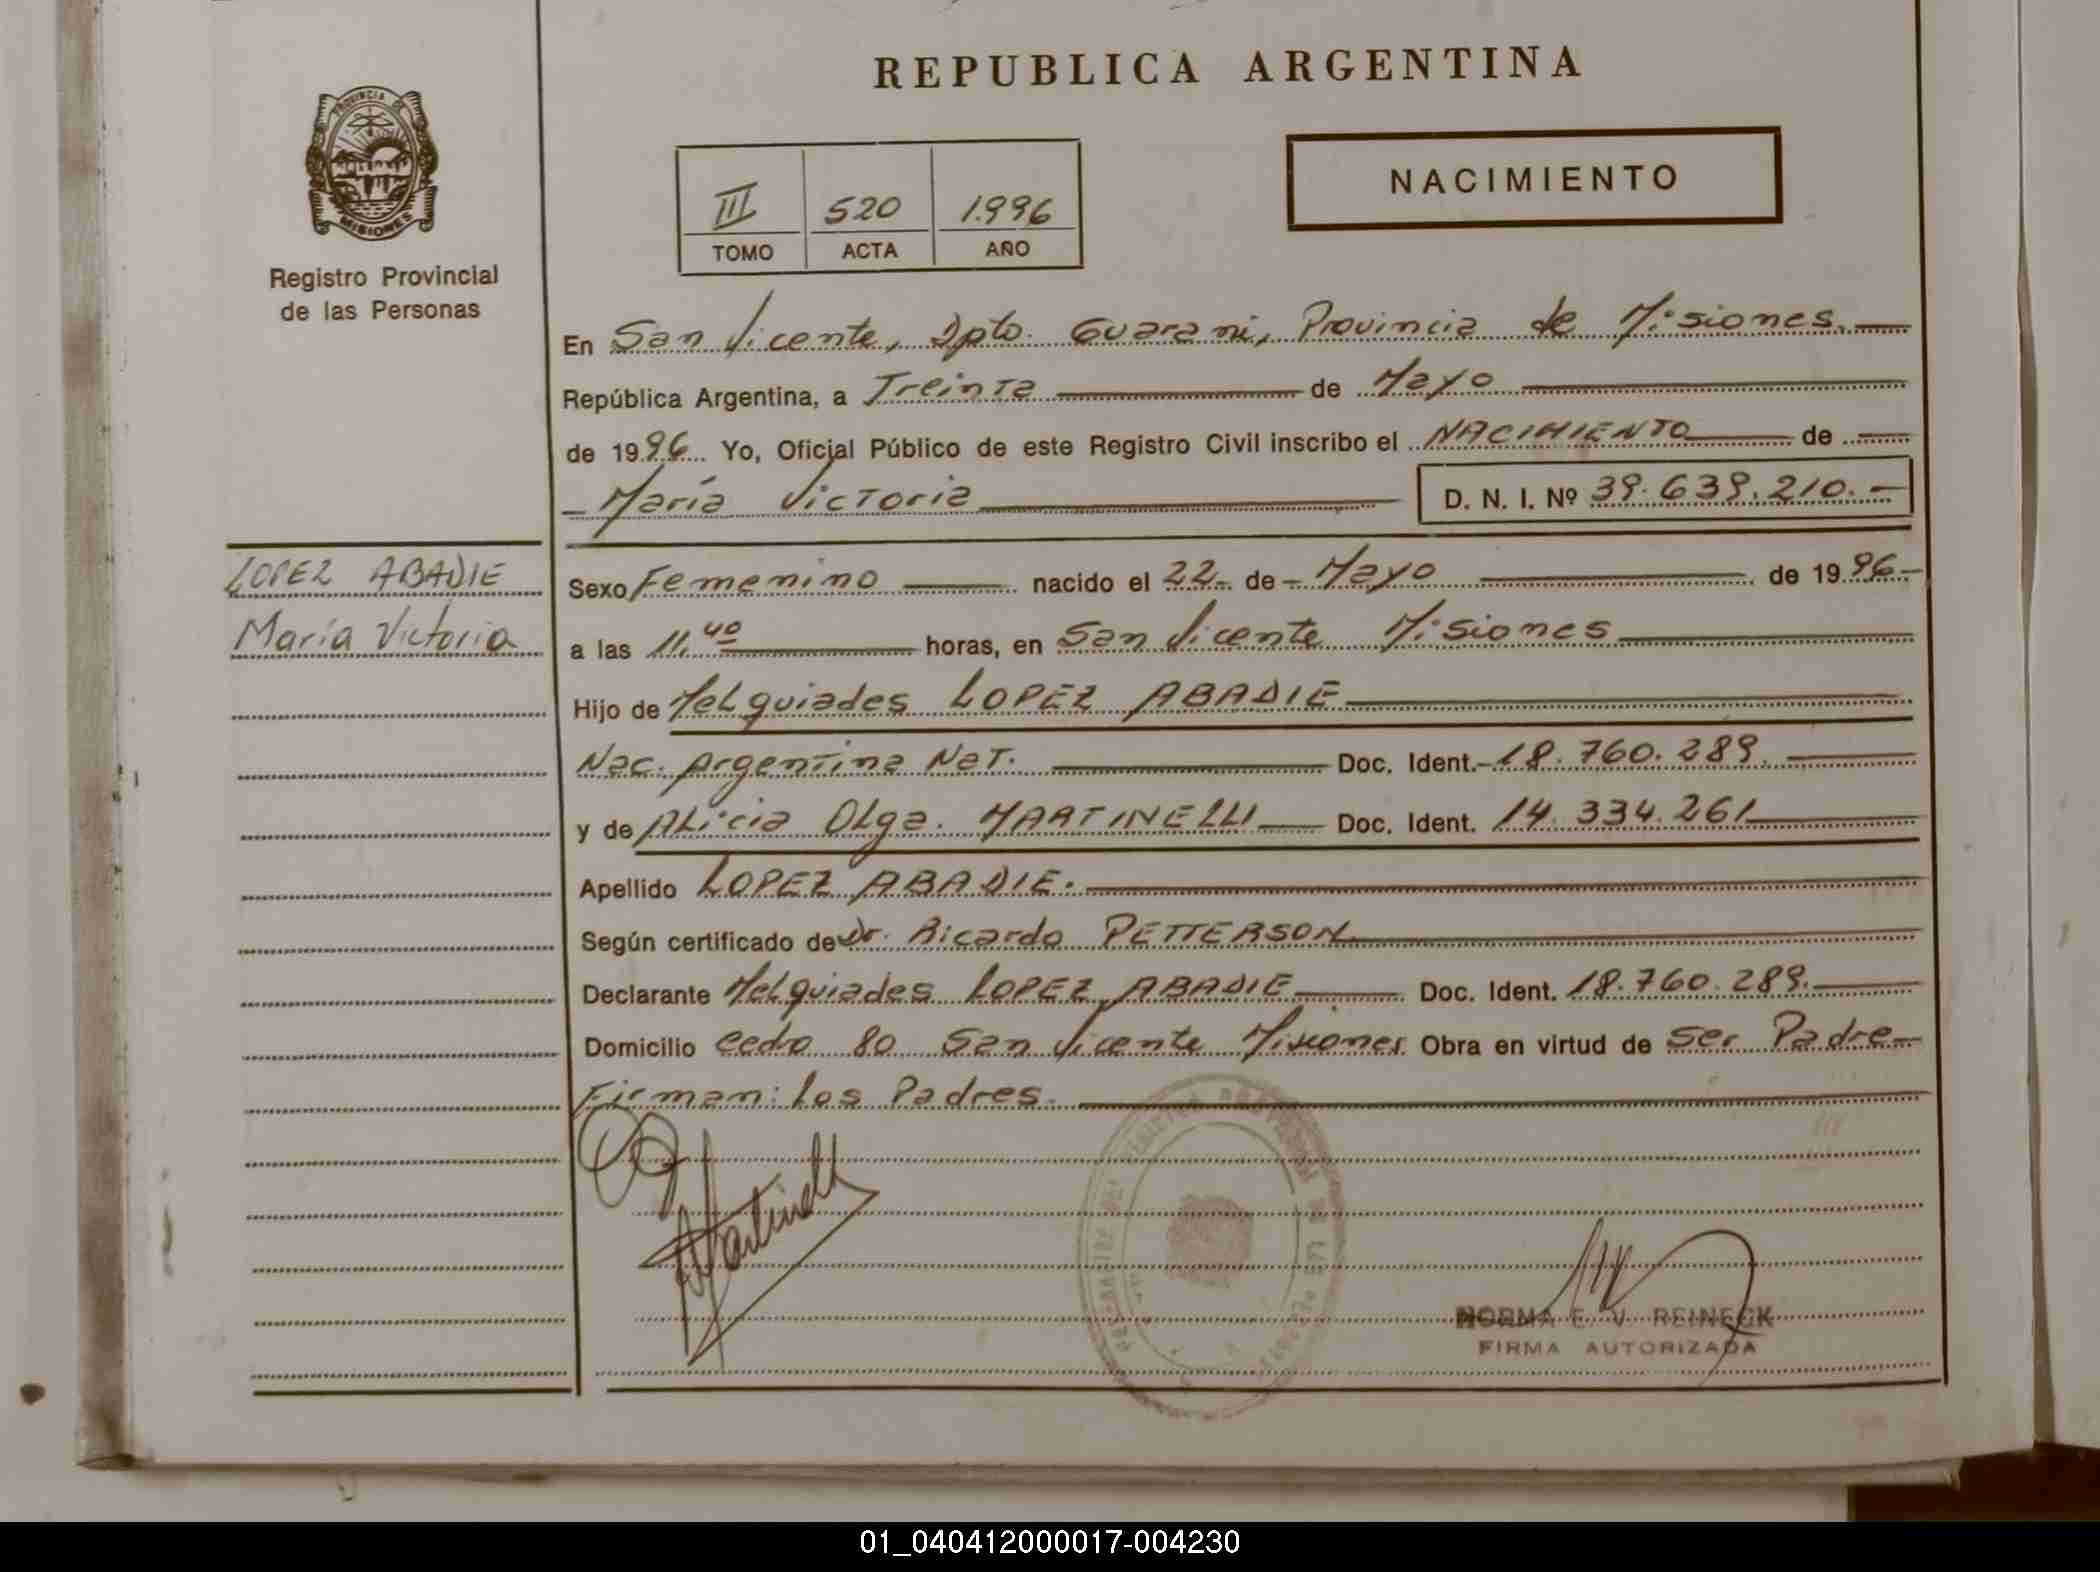 REPUBLICA ARGENTINA
PROVINCIA DE
MISIONES
Registro Provincial
de las Personas
III 520 1.996
TOMO ACTA AÑO
NACIMIENTO
En San Vicente, Dpto. Guarani, Provincia de Misiones.
República Argentina, a Treinta de Mayo
de 1996 Yo, Oficial Público de este Registro Civil inscribo el NACIMIENTO de
María Victoria D. N. I. Nº 39.639.210.-
LOPEZ ABADIE
María Victoria
Sexo Femenino nacido el 22- de Mayo de 1996-
a las 11.40 horas, en San Vicente Misiones
Hijo de Melquiades LOPEZ ABADIE
Nac. Argentina Nat. Doc. Ident. 18.760.289.
y de Alicia Olga. MARTINELLI Doc. Ident. 14.334.261
Apellido LOPEZ ABADIE.
Según certificado de Dr. Ricardo PETTERSON
Declarante Melquiades LOPEZ ABADIE Doc. Ident. 18.760.289.
Domicilio Cedro 80 San Vicente Misiones Obra en virtud de ser Padre-
Firman: los Padres.
NORMA E. V. REINECK
FIRMA AUTORIZADA
01_040412000017-004230